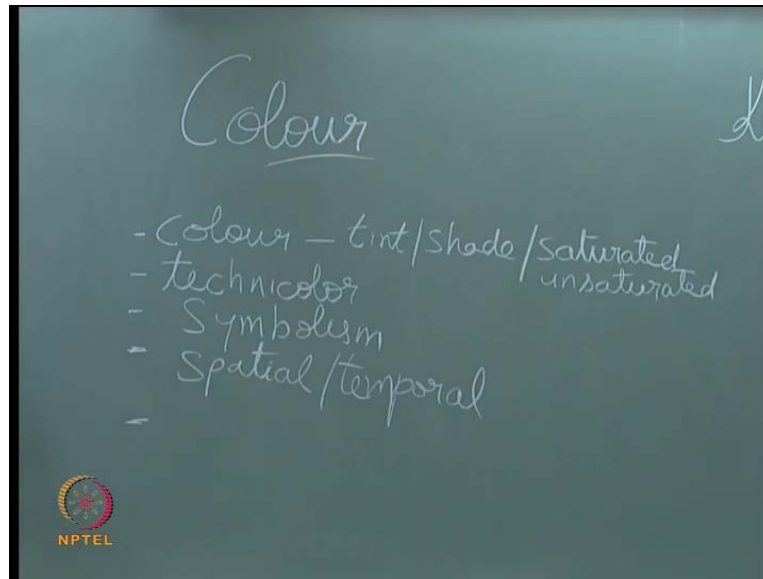 Colour
- Colour – tint/shade/saturated
unsaturated
- technicolor
- Symbolism
- Spatial/temporal
-
NPTEL